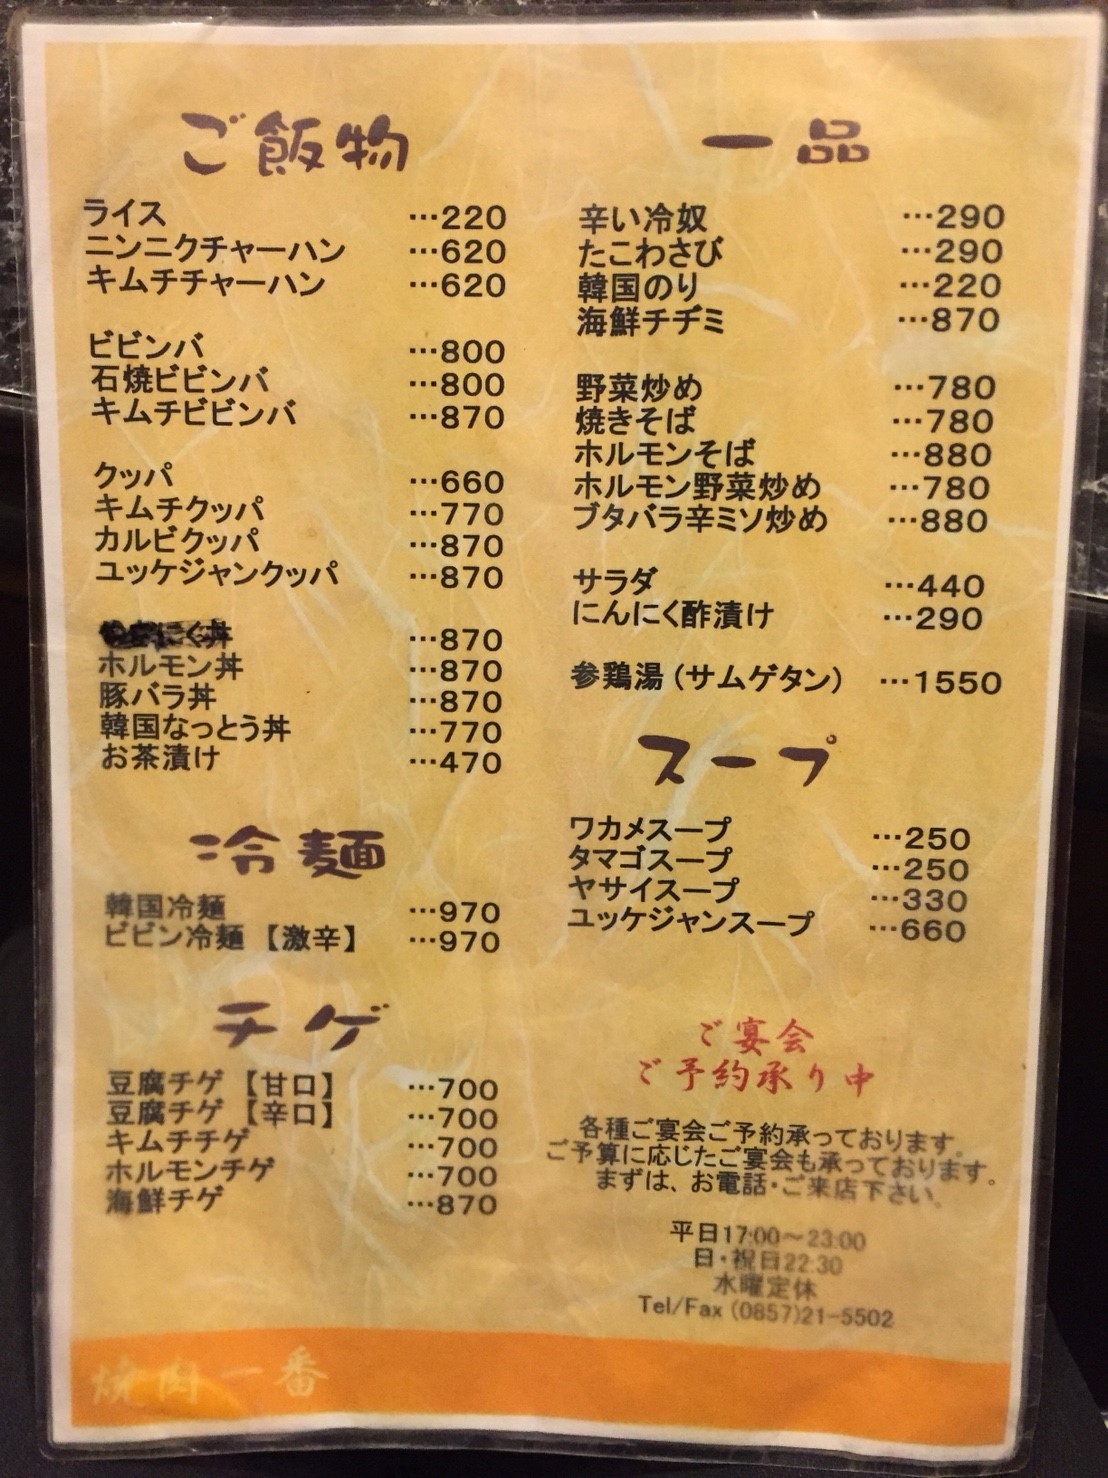 ご飯物
ライス …220
ニンニクチャーハン …620
キムチチャーハン …620
ビビンバ …800
石焼ビビンバ …800
キムチビビンバ …870
クッパ …660
キムチクッパ …770
カルビクッパ …870
ユッケジャンクッパ …870
にく丼 …870
ホルモン丼 …870
豚バラ丼 …870
韓国なっとう丼 …770
お茶漬け …470
冷麺
韓国冷麺 …970
ビビン冷麺【激辛】 …970
チゲ
豆腐チゲ【甘口】 …700
豆腐チゲ【辛口】 …700
キムチチゲ …700
ホルモンチゲ …700
海鮮チゲ …870
一品
辛い冷奴 …290
たこわさび …290
韓国のり …220
海鮮チヂミ …870
野菜炒め …780
焼きそば …780
ホルモンそば …880
ホルモン野菜炒め …780
ブタバラ辛ミソ炒め …880
サラダ …440
にんにく酢漬け …290
参鶏湯(サムゲタン) …1550
スープ
ワカメスープ …250
タマゴスープ …250
ヤサイスープ …330
ユッケジャンスープ …660
ご宴会
ご予約承り中
各種ご宴会ご予約承っております。
ご予算に応じたご宴会も承っております。
まずは、お電話・ご来店下さい。
平日17:00〜23:00
日・祝日22:30
水曜定休
Tel/Fax (0857)21-5502
焼肉一番